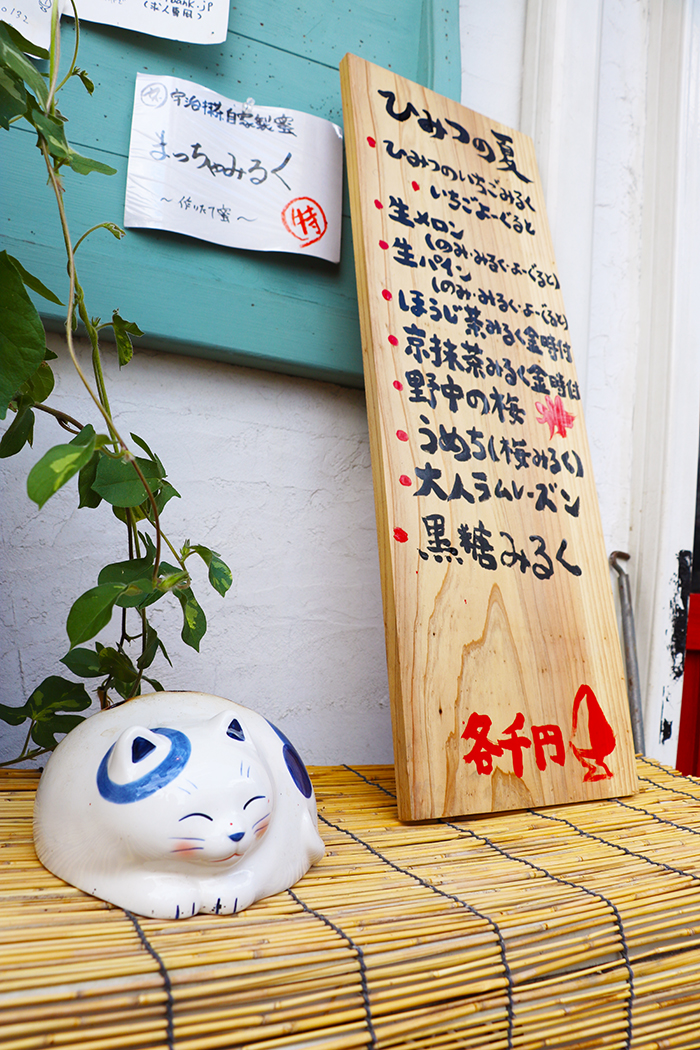 0132
bank.jp
(求人専用)
宇治抹茶自家製蜜
まっちゃみるく
〜作りたて蜜〜
特
ひみつの夏
ひみつのいちごみるく
いちごよーぐると
生メロン
(のみ・みるく・よーぐると)
生パイン
(のみ・みるく・よーぐると)
ほうじ茶みるく金時付
京抹茶みるく金時付
野中の梅
うめち(梅みるく)
大人ラムレーズン
黒糖みるく
各千円